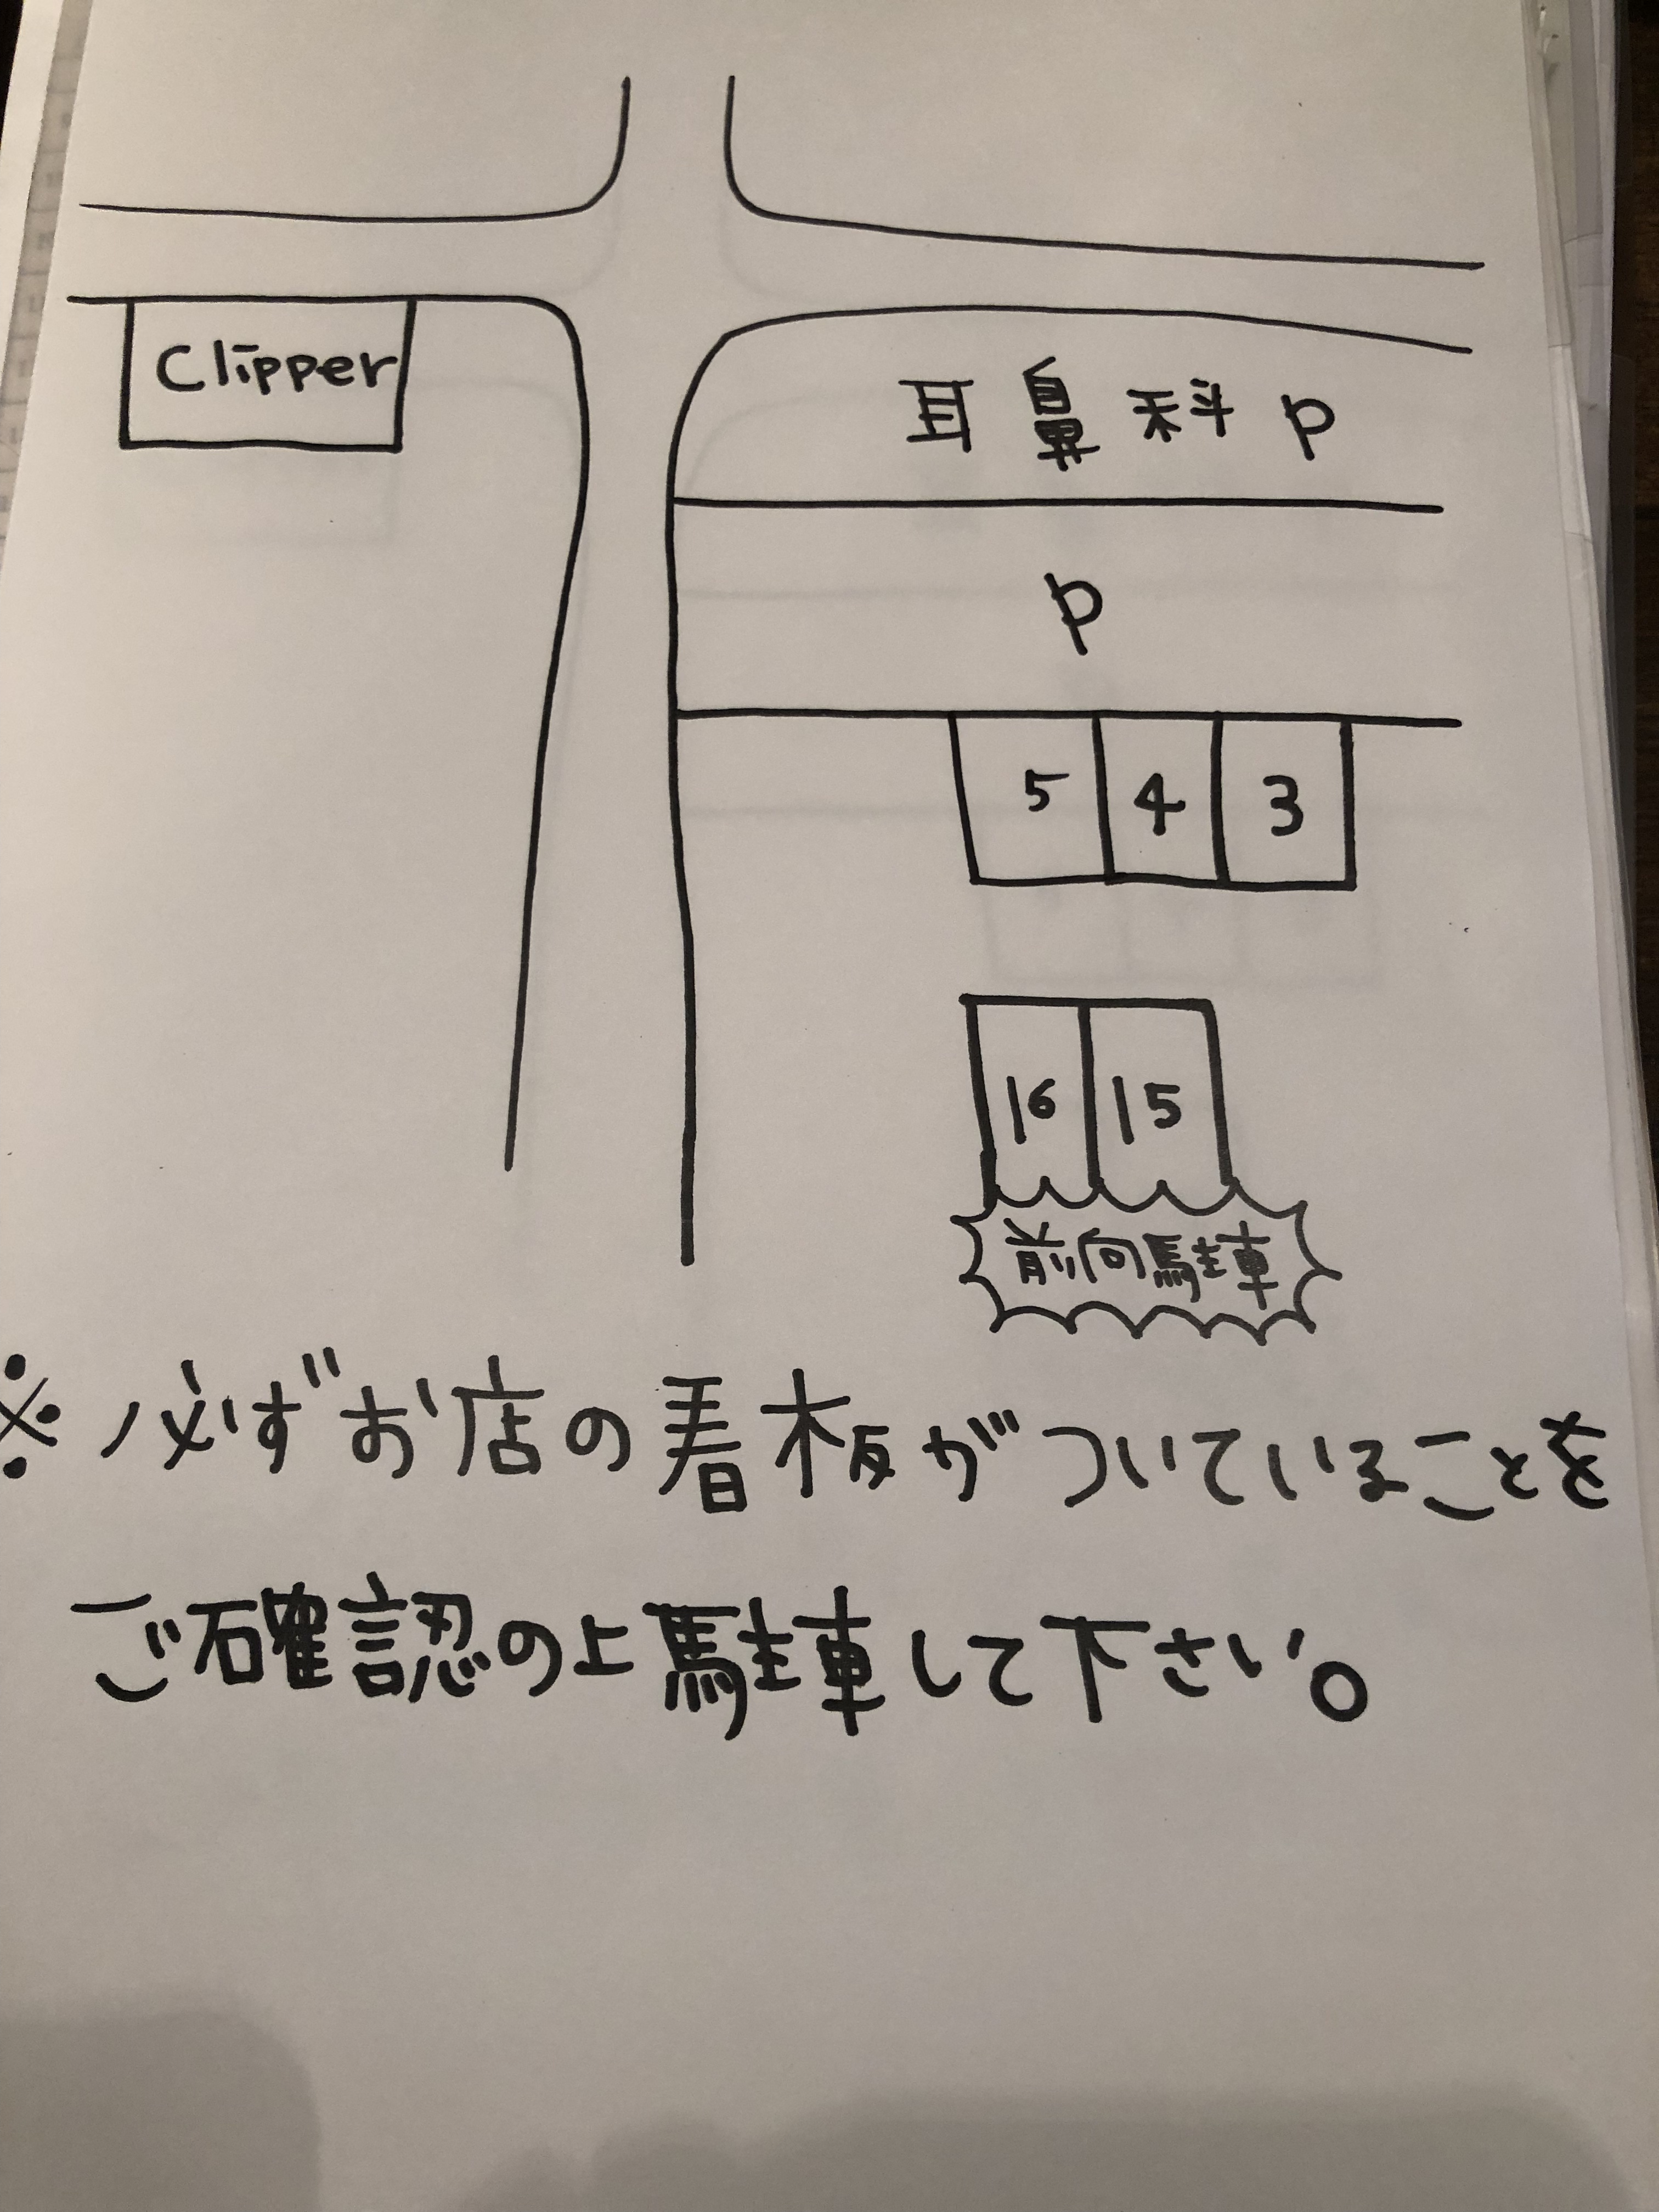 Clipper
耳鼻科 P
P
5 4 3
16 15
前向駐車
※必ずお店の看板がついていることを
ご確認の上駐車して下さい。